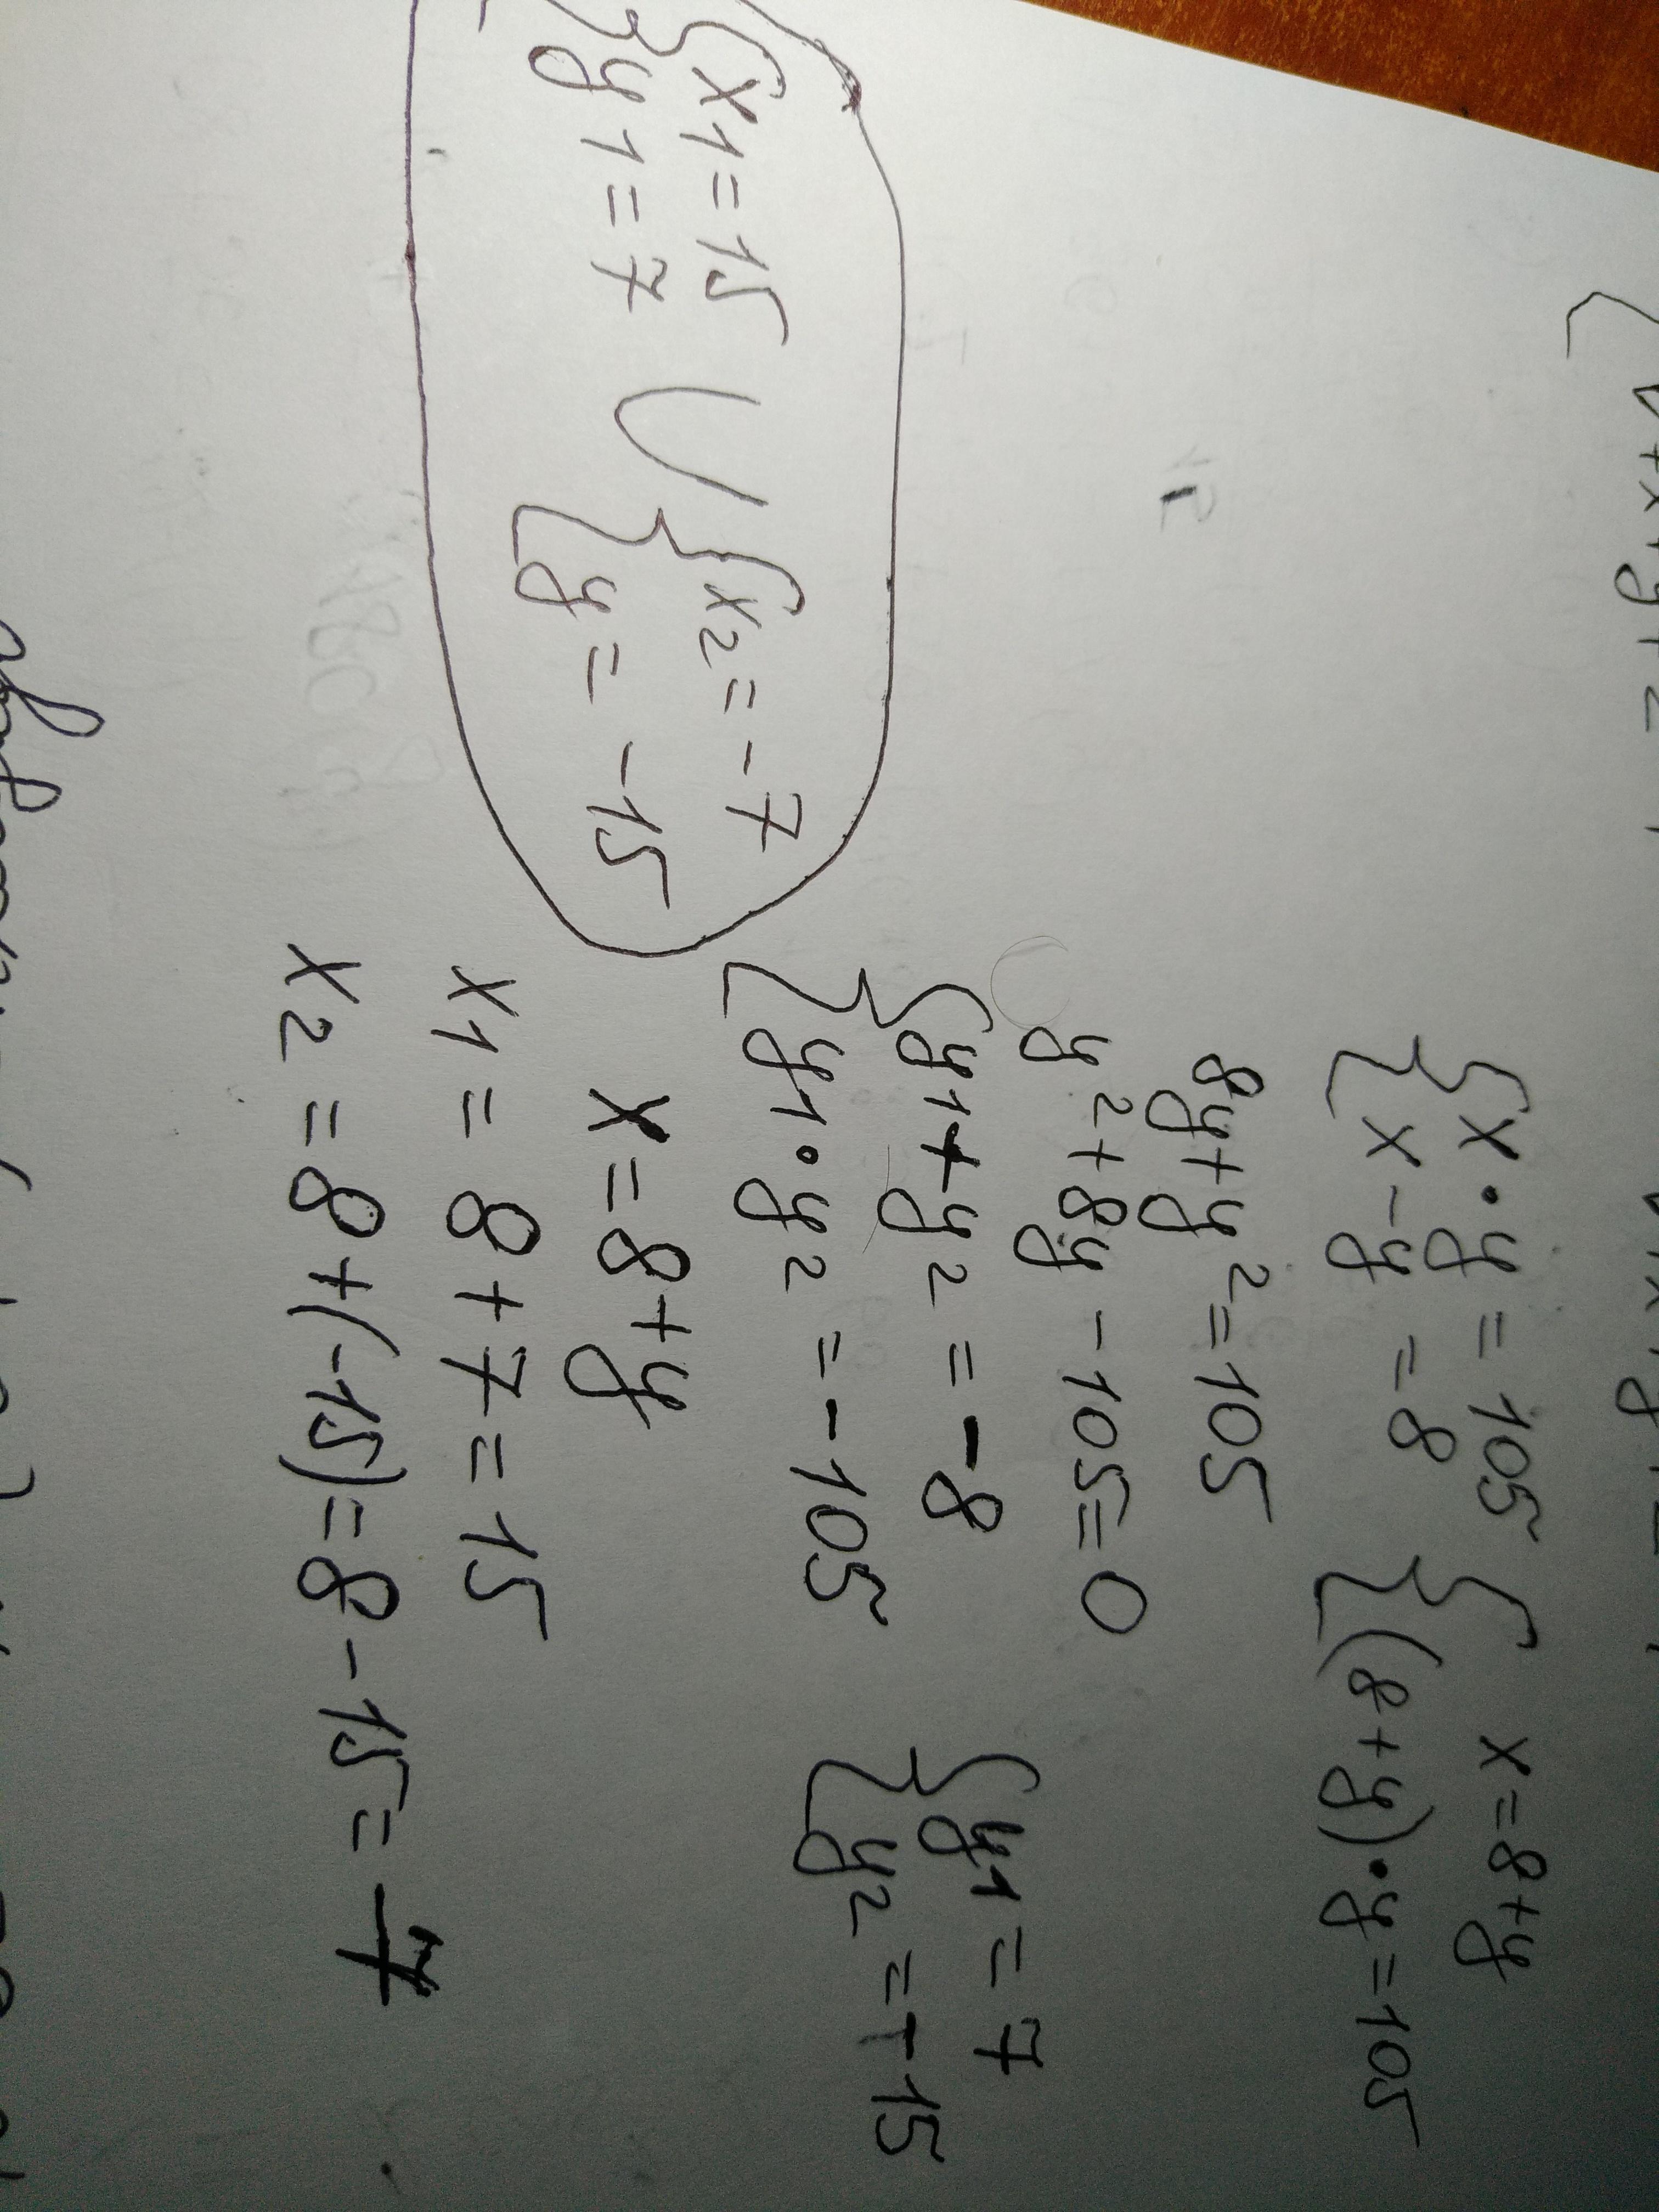 { x · y = 105 { x = 8 + y
{ x - y = 8 { (8 + y) · y = 105
8y + y² = 105
y² + 8y - 105 = 0
{ y1 + y2 = -8 { y1 = 7
{ y1 · y2 = -105 { y2 = -15
x = 8 + y
x1 = 8 + 7 = 15
x2 = 8 + (-15) = 8 - 15 = -7
{ x1 = 15 ∪ { x2 = -7
{ y1 = 7 { y = -15